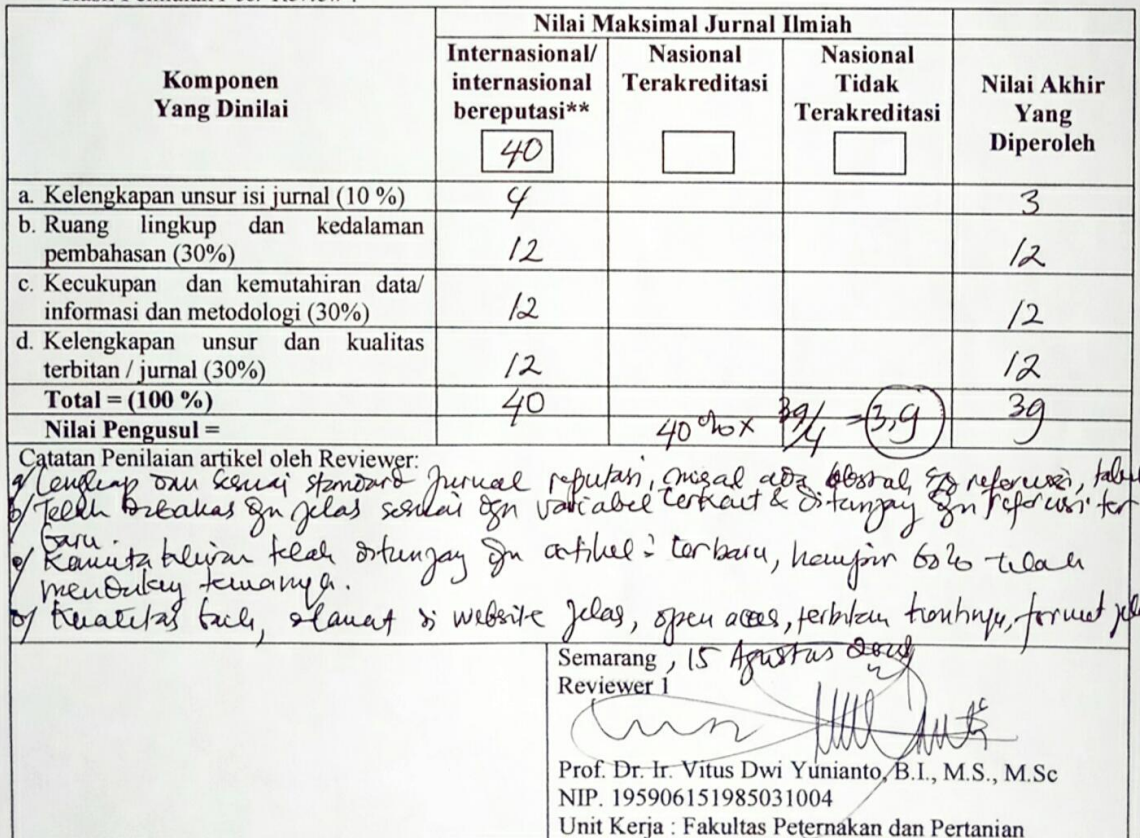 Nilai Maksimal Jurnal Ilmiah
Komponen
Yang Dinilai
Internasional/
internasional
bereputasi**
40
Nasional
Terakreditasi
Nasional
Tidak
Terakreditasi
Nilai Akhir
Yang
Diperoleh
a. Kelengkapan unsur isi jurnal (10 %) 4 3
b. Ruang lingkup dan kedalaman
pembahasan (30%) 12 12
c. Kecukupan dan kemutahiran data/
informasi dan metodologi (30%) 12 12
d. Kelengkapan unsur dan kualitas
terbitan / jurnal (30%) 12 12
Total = (100 %) 40 39
Nilai Pengusul = 40% x 39/4 = 3,9
Catatan Penilaian artikel oleh Reviewer:
a/ Lengkap dan sesuai standard jurnal reputasi, misal ada referensi, tabel
b/ Telah dibahas dgn jelas sesuai dgn variabel terkait & ditunjang dgn referensi ter
baru.
c/ telah ditunjang dgn artikel terbaru, hampir 60% telah
mendukung temanya.
d/ Kualitas baik, alamat di website jelas, open acces, terbitan format
Semarang, 15 Agustus
Reviewer 1
Prof. Dr. Ir. Vitus Dwi Yunianto, B.I., M.S., M.Sc
NIP. 195906151985031004
Unit Kerja : Fakultas Peternakan dan Pertanian